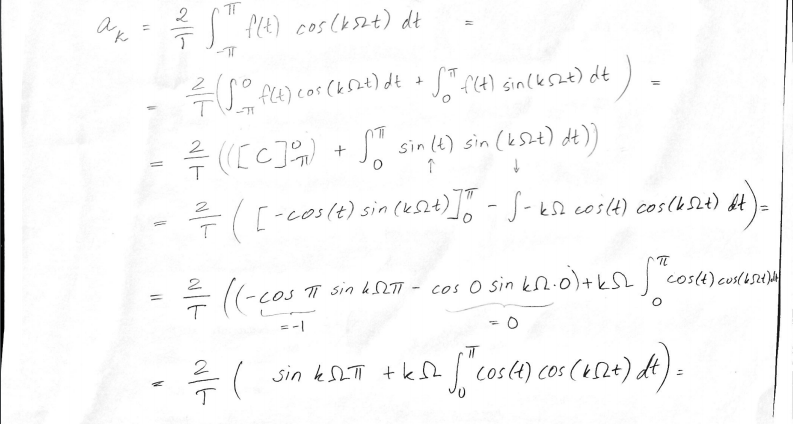 a_k = 2/T ∫_{-π}^{π} f(t) cos(kΩt) dt =
= 2/T (∫_{-π}^{0} f(t) cos(kΩt) dt + ∫_0^π f(t) sin(kΩt) dt) =
= 2/T (([C]_{-π}^0) + ∫_0^π sin(t) sin(kΩt) dt))
↑ ↓
= 2/T ([-cos(t) sin(kΩt)]_0^π - ∫-kΩ cos(t) cos(kΩt) dt) =
= 2/T ((-cos π sin kΩπ - cos 0 sin kΩ·0) + kΩ ∫_0^π cos(t) cos(kΩt) dt
=-1 =0
= 2/T ( sin kΩπ + kΩ ∫_0^π cos(t) cos(kΩt) dt) =